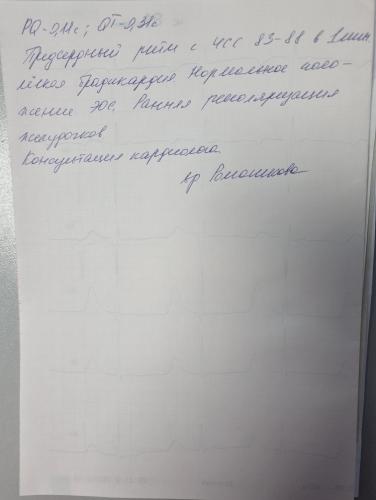 PQ-0,11с; QT-0,31с
Предсердный ритм с ЧСС 83-88 в 1 мин
лёгкая брадикардия Нормальное поло-
жение ЭОС. Ранняя реполяризация
желудочков
Консультация кардиолога
вр Ромашкова